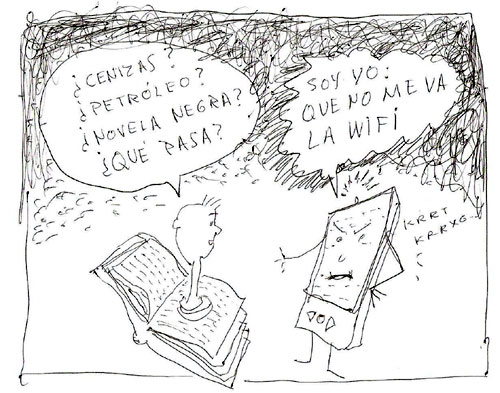 ¿CENIZAS?
¿PETRÓLEO?
¿NOVELA NEGRA?
¿QUÉ PASA?
SOY YO:
QUE NO ME VA
LA WIFI
KRRT
KRRXG...